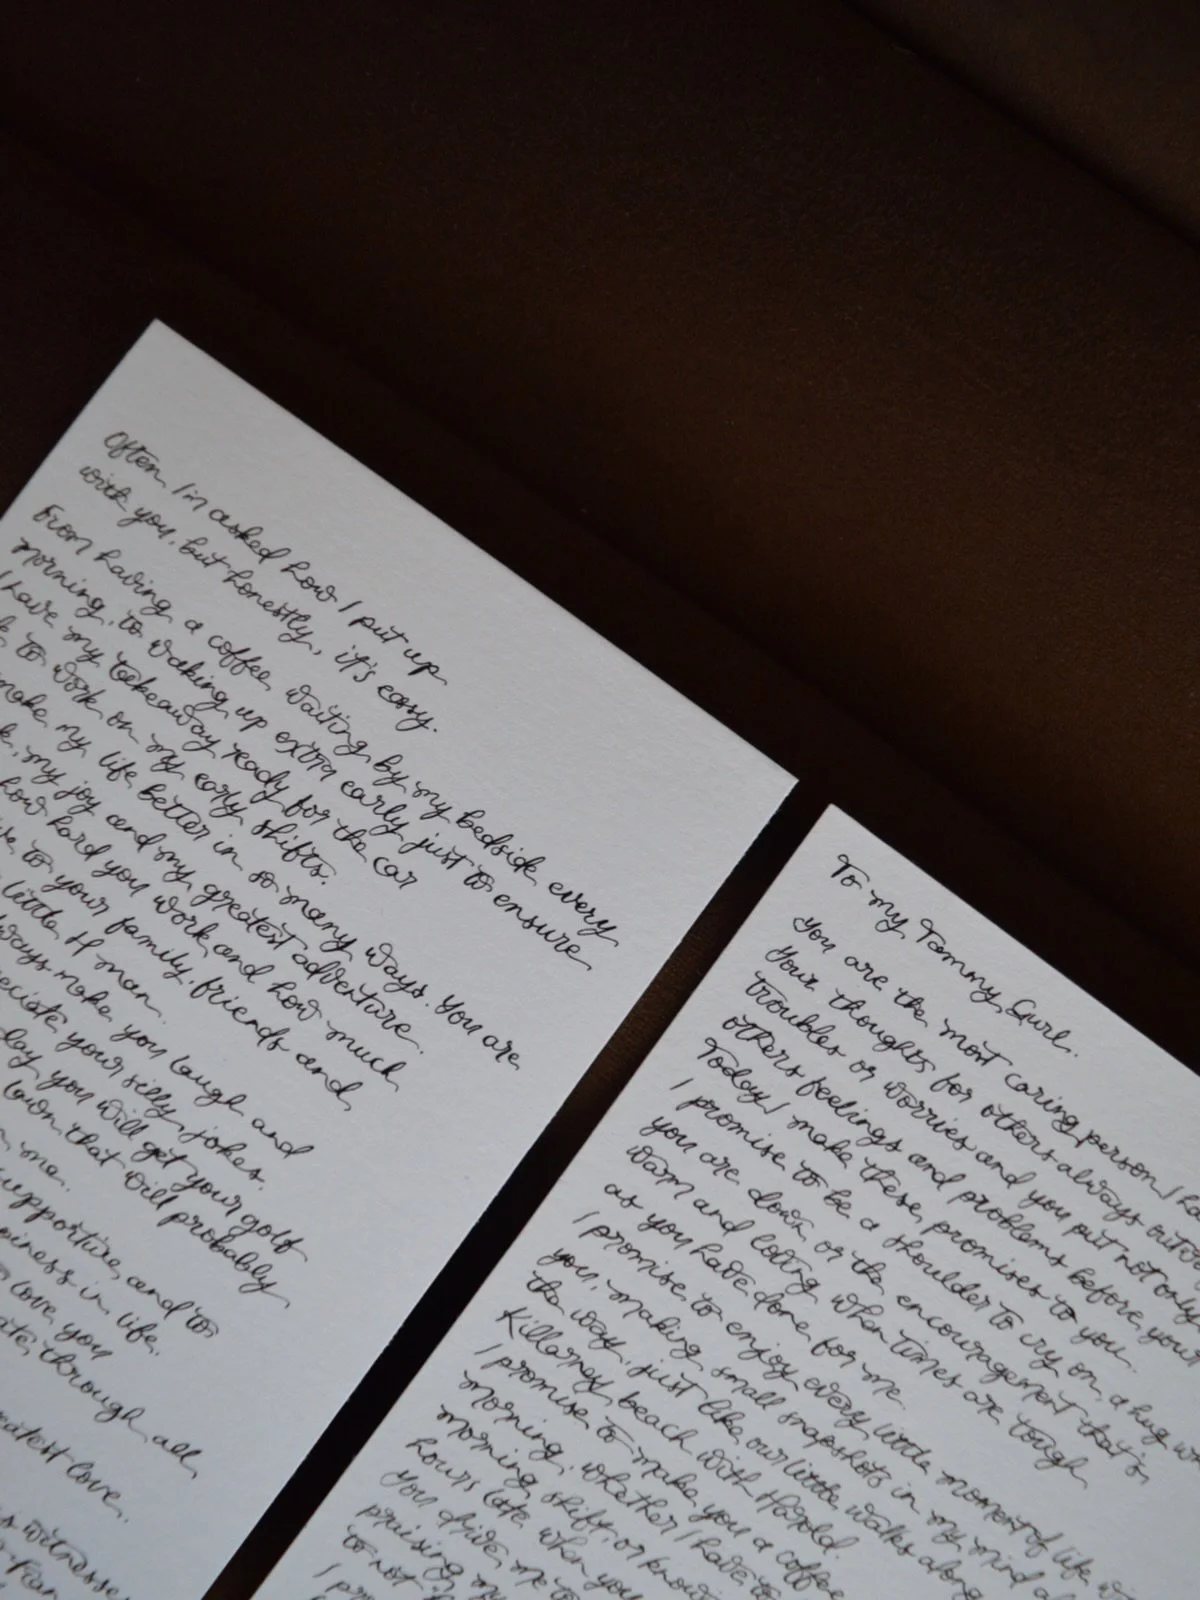 Often I'm asked how I put up
with you, but honestly, it's easy.
From having a coffee waiting by my bedside every
morning, to waking up extra early just to ensure
I have my takeaway ready for the car
to work on my early shifts.
make my life better in so many ways. You are
my joy and my greatest adventure.
how hard you work and how much
to your family, friends and
little H man.
always make you laugh and
your silly jokes.
day you will get your golf
town that will probably
me.
supportive, and to
in life.
love you
through all
greatest love.
To my Tammy Gurl.
You are the most caring person I
Your thoughts for others always
troubles or worries and you put not only
others feelings and problems before your
Today I make these promises to you.
I promise to be a shoulder to cry on, a hug
you are down or the encouragement that's
warm and loving when times are tough
as you have done for me.
I promise to enjoy every little moment of life
you, making small snapshots in my mind
the way, just like our little walks along
Killarney beach with Harold.
I promise to make you a coffee
morning, whether I have to
morning shift, or
hours late when you
you drive me to
my
to not
I